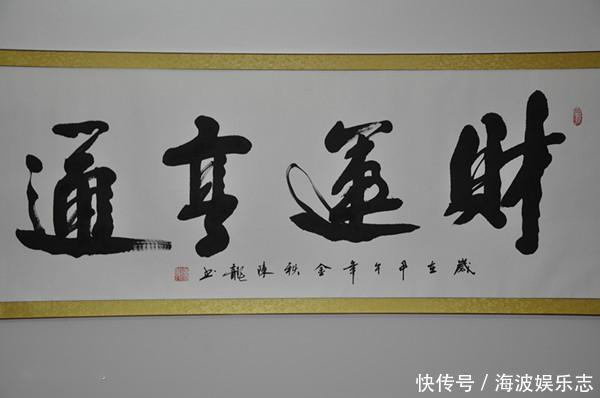 財運亨通
歲在甲午年金秋陳龍书
快传号 / 海波娱乐志